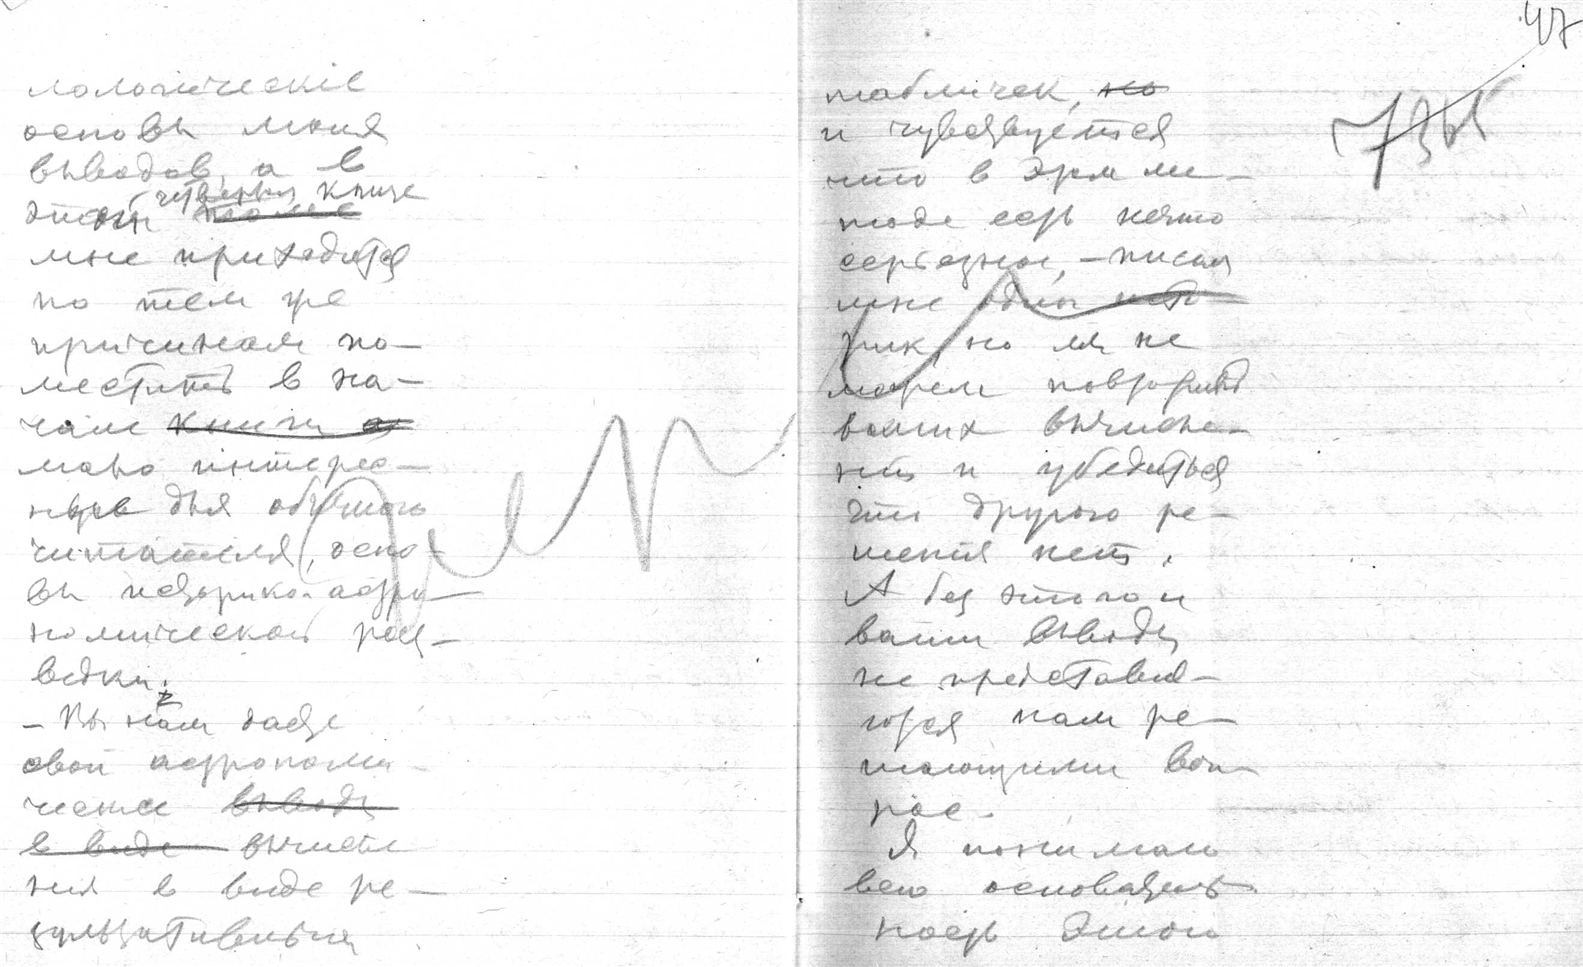 логические
основы моих
выводов, а в
этой четвертой книге
мне приходится
по тем же
причинам по-
местить в на-
чале книги
мало интерес-
ные для обычного
читателя, осно-
вы историко-астро-
номической раз-
ведки.
– Вы нам даете
свои астрономи-
ческие выводы
в виде вычисле
ния в виде ре-
зультативных
47
табличек, но
и чувствуется
что в этом ме-
тоде есть нечто
серьезное, – писал
мне один исто
рик, но мы не
можем повторить
ваших вычисле-
ний и убедиться
что другого ре-
шения нет.
А без этого и
ваши выводы
не представля-
ются нам ре-
шающими воп-
рос.
Я понимаю
всю основатель-
ность этой